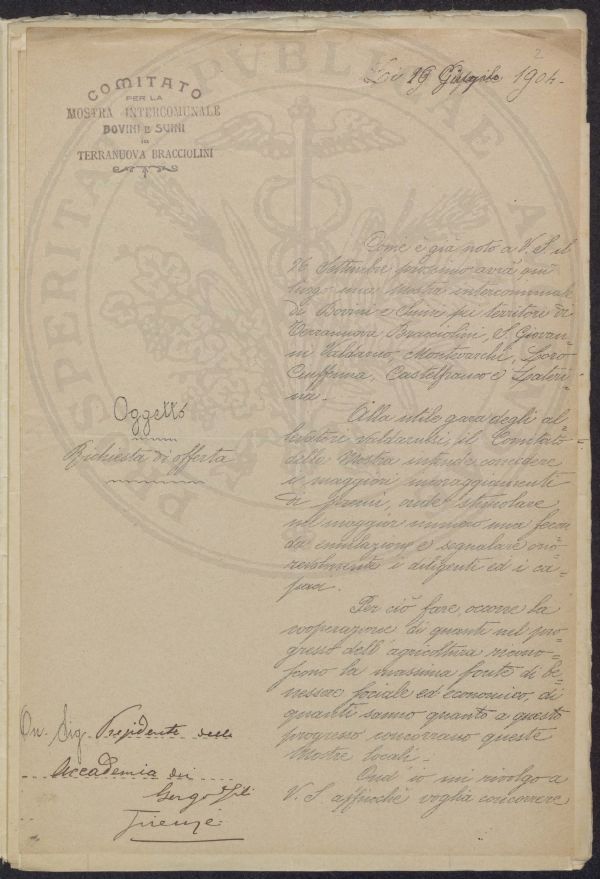 2
Lì 19 1904.
COMITATO
PER LA
MOSTRA INTERCOMUNALE
BOVINI E SUINI
in
TERRANUOVA BRACCIOLINI
PUBLICAE
PROSPERITATI
Come è già noto a V. S. il
26 Settembre prossimo avrà qui
luogo una Mostra intercomunale
di Bovini e Suini pei territori di
Terranuova Bracciolini, S. Giovan=
ni Valdarno, Montevarchi, Loro
Ciuffenna, Castelfranco e Lateri=
na.
Alla utile gara degli al=
levatori valdarnesi, il Comitato
della Mostra intende concedere
i maggiori incoraggiamenti
di premi, onde stimolare
nel maggior numero una fecon
da emulazione e segnalare ono=
revolmente i diligenti ed i ca=
paci.
Per ciò fare, occorre la
cooperazione di quanti nel pro=
gresso dell'agricoltura ricono=
scono la massima fonte di be=
nessere sociale ed economico, di
quanti sanno quanto a questo
progresso concorrano queste
Mostre locali.
Ond'io mi rivolgo a
V. S. affinchè voglia concorrere
Oggetto
Richiesta di offerta
On. Sig. Presidente della
Accademia dei
Georgofili
Firenze